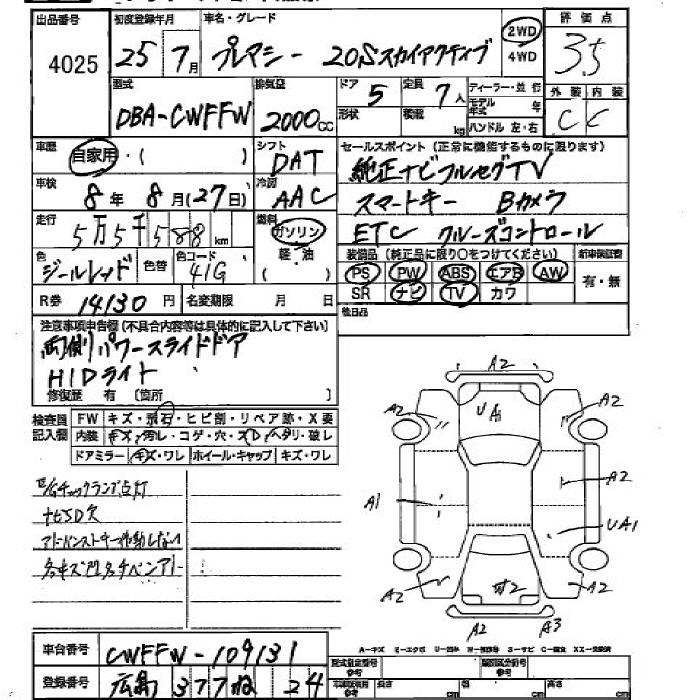 出品番号 初度登録年月 車名・グレード 評価点
4025 25 7月 プレマシー 20Sスカイアクティブ 2WD 4WD 3.5
型式 排気量 ドア 定員 ディーラー・並行 外装 内装
DBA-CWFFW 2000cc 5 7人 モデル年式 年 C C
形状 積載 kg ハンドル 左・右
車歴 自家用・( ) シフト DAT
セールスポイント(正常に機能するものに限ります)
純正ナビフルセグTV
車検 8年 8月(27日) 冷房 AAC
スマートキー Bカメラ
走行 5万5千588km 燃料 ガソリン 軽・油 ( )
ETC クルーズコントロール
色 ジールレッド 色替 色コード 41G
装備品(純正品に限り○をつけてください) 新車保証書
PS PW ABS エアB AW 有・無
SR ナビ TV カワ
R券 14130円 名変期限 月 日
後日品
注意事項申告欄(不具合内容等は具体的に記入して下さい)
両側パワースライドドア
HIDライト
修復歴 有 〔箇所 〕
検査員記入欄 FW キズ・飛石・ヒビ割・リペア跡・X要
内装 キズ・汚レ・コゲ・穴・スレ・ヘタリ・破レ
ドアミラー キズ・ワレ ホイール・キャップ キズ・ワレ
E/Gチェックランプ点灯
ナビSD欠
アドバンストキー作動しない
A2
A2 UA1 A2
A2
A1 UA1
A2 A2
A2 A3
A-キズ
車台番号 CWFFW-109131
登録番号 広島 377 ね 24
型式指定番号 参考 類別区分番号 参考
長さ cm 幅 cm 高さ cm